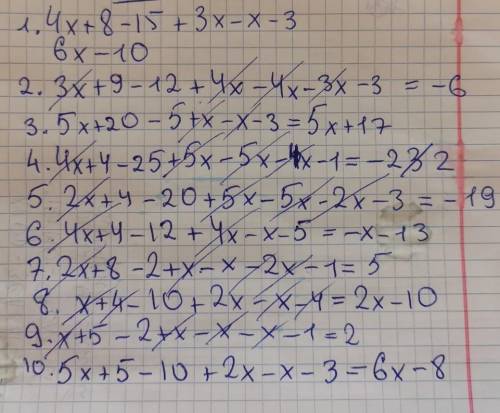 1. 4x+8-15+3x-x-3
6x-10
2. 3x+9-12+4x-4x-3x-3 = -6
3. 5x+20-5+x-x-3=5x+17
4. 4x+4-25+5x-5x-4x-1=-22
5. 2x+4-20+5x-5x-2x-3=-19
6. 4x+4-12+4x-x-5=-x-13
7. 2x+8-2+x-x-2x-1=5
8. x+4-10+2x-x-4=2x-10
9. x+5-2+x-x-x-1=2
10. 5x+5-10+2x-x-3=6x-8